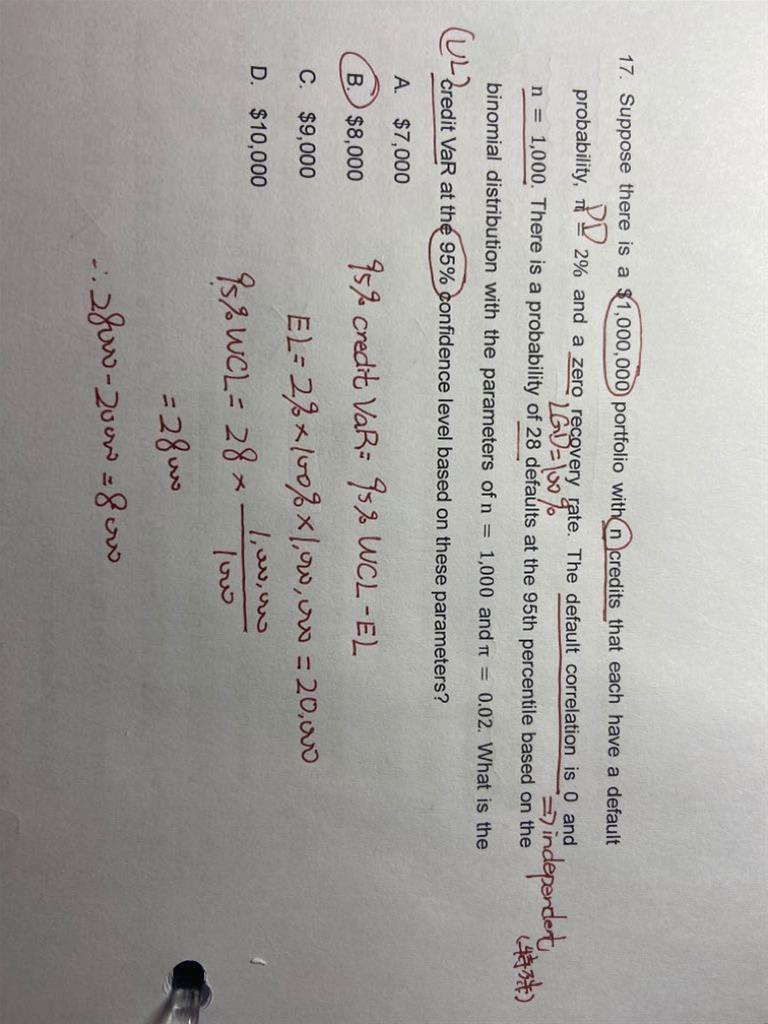 17. Suppose there is a $1,000,000 portfolio with n credits that each have a default
PD
probability, π = 2% and a zero recovery rate. The default correlation is 0 and
LGD=100%
=> independent,
(特殊)
n = 1,000. There is a probability of 28 defaults at the 95th percentile based on the
binomial distribution with the parameters of n = 1,000 and π = 0.02. What is the
(UL)
credit VaR at the 95% confidence level based on these parameters?
A. $7,000
B. $8,000
C. $9,000
D. $10,000
95% credit VaR = 95% WCL - EL
EL = 2% × 100% × 1,000,000 = 20,000
95% WCL = 28 × 1,000,000
1000
= 28000
∴ 28000 - 20000 = 8000